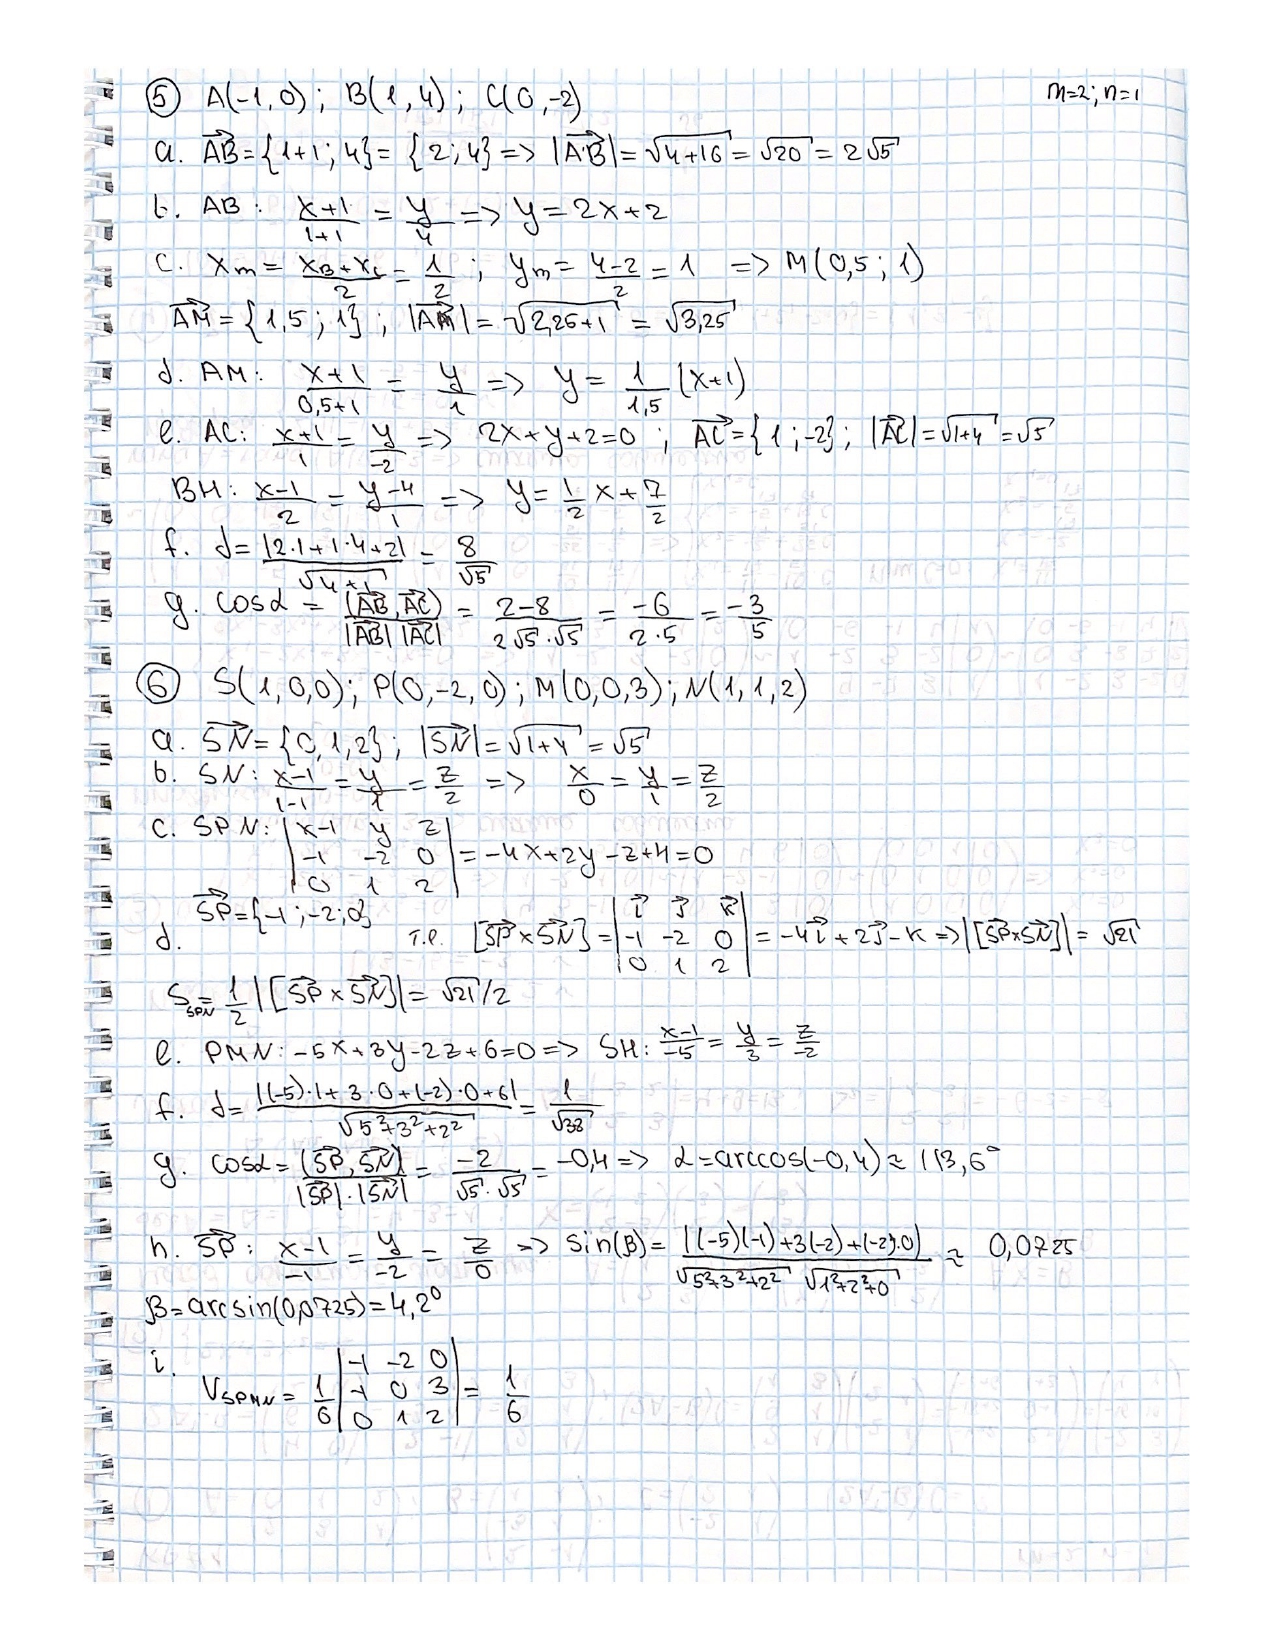 ⑤ A(-1,0); B(1,4); C(0,-2) m=2; n=1
a. AB={1+1; 4}={2;4} => |AB|=√4+16=√20=2√5
b. AB: (x+1)/(1+1) = y/4 => y=2x+2
c. xm= (xB+xc)/2 = 1/2; ym= (4-2)/2 = 1 => M(0,5; 1)
AM={1,5; 1}; |AM|=√2,25+1 = √3,25
d. AM: (x+1)/(0,5+1) = y/1 => y= 1/1,5 (x+1)
e. AC: (x+1)/1 = y/-2 => 2x+y+2=0; AC={1;-2}; |AC|=√1+4=√5
BH: (x-1)/2 = (y-4)/1 => y= 1/2 x + 7/2
f. d= |2·1+1·4+2|/√4+1 = 8/√5
g. cosα = (AB, AC)/|AB| |AC| = (2-8)/(2√5·√5) = -6/(2·5) = -3/5
⑥ S(1,0,0); P(0,-2,0); M(0,0,3); N(1,1,2)
a. SN={0,1,2}; |SN|=√1+4=√5
b. SN: (x-1)/(1-1) = y/1 = z/2 => x/0 = y/1 = z/2
c. SPN: |x-1 y z
-1 -2 0
0 1 2| = -4x+2y-z+4=0
SP={-1;-2;0}
d. т.е. [SP×SN] = |i j k
-1 -2 0
0 1 2| = -4i+2j-k => |[SP×SN]|= √21
S SPN = 1/2 |[SP×SN]|= √21/2
e. PMN: -5x+3y-2z+6=0 => SH: (x-1)/-5 = y/3 = z/-2
f. d= |(-5)·1+3·0+(-2)·0+6|/√5²+3²+2² = 1/√38
g. cosα= (SP, SN)/|SP|·|SN| = -2/(√5·√5) = -0,4 => α=arccos(-0,4)≈113,6°
h. SP: (x-1)/-1 = y/-2 = z/0 => sin(β)= |(-5)(-1)+3(-2)+(-2)·0|/(√5²+3²+2² √1²+2²+0) ≈ 0,0725
β=arcsin(0,0725)=4,2°
i. V SPMN = 1/6 |-1 -2 0
-1 0 3
0 1 2| = 1/6